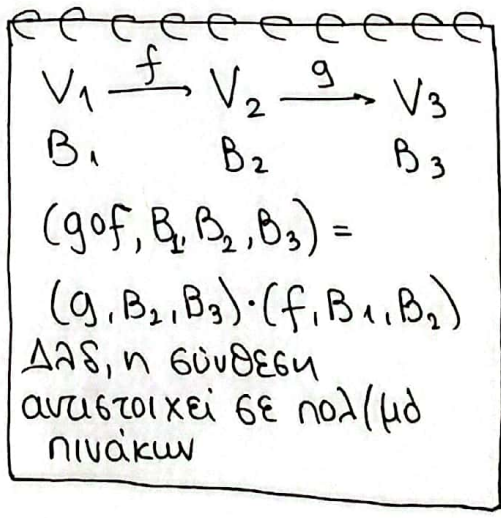 V₁ —f→ V₂ —g→ V₃
B₁ B₂ B₃
(gof, B₁, B₂, B₃) =
(g, B₂, B₃)·(f, B₁, B₂)
Δλδ, η σύνθεση
αντιστοιχεί σε πολ/μό
πινάκων